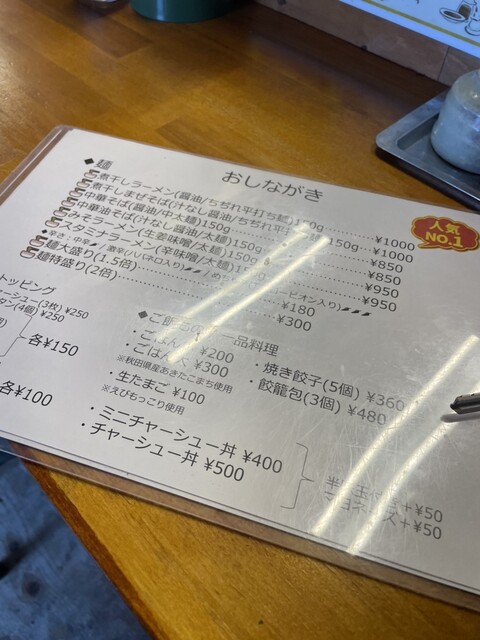 おしながき
◆麺
煮干しラーメン(醤油/ちぢれ平打ち麺)150g ¥1000
煮干しまぜそば(汁なし醤油/ちぢれ平打ち麺)150g ¥1000
人気
NO.1
中華そば(醤油/中太麺)150g ¥850
中華油そば(汁なし醤油/太麺)150g ¥850
みそラーメン(生姜味噌/太麺)150g ¥950
スタミナラーメン(辛味噌/太麺)150g ¥950
麺大盛り(1.5倍) ¥180
麺特盛り(2倍) ¥300
トッピング
チャーシュー(3枚) ¥250
タン(4個) ¥250
各¥150
各¥100
一品料理
・ごはん ¥200
・ごはん大 ¥300
※秋田県産あきたこまち使用
・生たまご ¥100
※えびもっこり使用
・焼き餃子(5個) ¥360
・餃籠包(3個) ¥480
・ミニチャーシュー丼 ¥400
・チャーシュー丼 ¥500
+¥50
+¥50